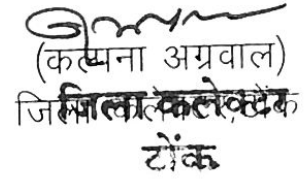 (कल्पना अग्रवाल)
जिला कलेक्टर
टोंक